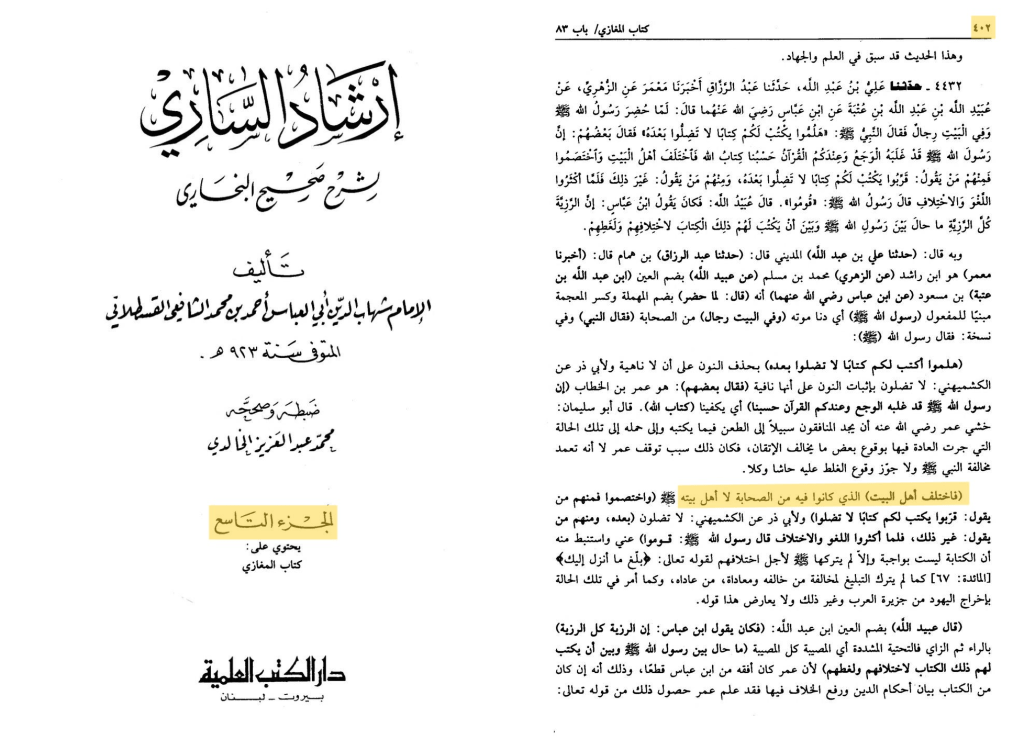 إرشاد الساري
لشرح صحيح البخاري
تأليف
الإمام شهاب الدين أبي العباس أحمد بن محمد الشافعي القسطلاني
المتوفى سنة ٩٢٣ هـ.
ضبطه وصححه
محمد عبد العزيز الخالدي
الجزء التاسع
يحتوي على:
كتاب المغازي
دار الكتب العلمية
بيروت - لبنان
٤٠٢
كتاب المغازي/ باب ٨٣
وهذا الحديث قد سبق في العلم والجهاد.
٤٤٣٢ - حدّثنا عَلِيُّ بْنُ عَبْدِ اللَّه، حَدَّثَنا عَبْدُ الرَّزّاقِ أَخْبَرَنَا مَعْمَرٌ عَنِ الزُّهْرِيِّ، عَنْ
عُبَيْدِ اللَّه بْنِ عَبْدِ اللَّه بْنِ عُتْبَةَ عَنِ ابْنِ عَبَّاسٍ رَضِيَ اللَّه عَنْهُما قالَ: لَمّا حُضِرَ رَسُولُ اللَّه ﷺ
وَفِي الْبَيْتِ رِجالٌ فَقالَ النَّبِيُّ ﷺ: «هَلُمُّوا أَكْتُبْ لَكُمْ كِتابًا لا تَضِلُّوا بَعْدَهُ» فَقالَ بَعْضُهُمْ: إنَّ
رَسُولَ اللَّه ﷺ قَدْ غَلَبَهُ الْوَجَعُ وَعِنْدَكُمُ الْقُرْآنُ حَسْبُنا كِتابُ اللَّه فَاخْتَلَفَ أَهْلُ الْبَيْتِ وَاخْتَصَمُوا
فَمِنْهُمْ مَنْ يَقُولُ: قَرِّبُوا يَكْتُبْ لَكُمْ كِتابًا لا تَضِلُّوا بَعْدَهُ، وَمِنْهُمْ مَنْ يَقُولُ: غَيْرَ ذلِكَ فَلَمّا أَكْثَرُوا
اللَّغْوَ وَالاخْتِلافَ قالَ رَسُولُ اللَّه ﷺ: «قُومُوا». قالَ عُبَيْدُ اللَّه: فَكانَ يَقُولُ ابْنُ عَبَّاسٍ: إنَّ الرَّزِيَّةَ
كُلَّ الرَّزِيَّةِ ما حالَ بَيْنَ رَسُولِ اللَّه ﷺ وَبَيْنَ أَنْ يَكْتُبَ لَهُمْ ذلِكَ الْكِتابَ لاخْتِلافِهِمْ وَلَغَطِهِمْ.
وبه قال: (حدثنا علي بن عبد اللَّه) المديني قال: (حدثنا عبد الرزاق) بن همام قال: (أخبرنا
معمر) هو ابن راشد (عن الزهري) محمد بن مسلم (عن عبيد اللَّه) بضم العين (ابن عبد اللَّه بن
عتبة) بن مسعود (عن ابن عباس رضي اللَّه عنهما) أنه (قال: لما حضر) بضم المهملة وكسر المعجمة
مبنيًا للمفعول (رسول اللَّه ﷺ) أي دنا موته (وفي البيت رجال) من الصحابة (فقال النبي) وفي
نسخة: فقال رسول اللَّه (ﷺ):
(هلموا أكتب لكم كتابًا لا تضلوا بعده) بحذف النون على أن لا ناهية ولأبي ذر عن
الكشميهني: لا تضلون بإثبات النون على أنها نافية (فقال بعضهم): هو عمر بن الخطاب (إن
رسول اللَّه ﷺ قد غلبه الوجع وعندكم القرآن حسبنا) أي يكفينا (كتاب اللَّه). قال أبو سليمان:
خشي عمر رضي اللَّه عنه أن يجد المنافقون سبيلاً إلى الطعن فيما يكتبه وإلى حمله إلى تلك الحالة
التي جرت العادة فيها بوقوع بعض ما يخالف الإتقان، فكان ذلك سبب توقف عمر لا أنه تعمد
مخالفة النبي ﷺ ولا جوّز وقوع الغلط عليه حاشا وكلا.
(فاختلف أهل البيت) الذي كانوا فيه من الصحابة لا أهل بيته ﷺ (واختصموا فمنهم من
يقول: قرّبوا يكتب لكم كتابًا لا تضلوا) ولأبي ذر عن الكشميهني: لا تضلون (بعده، ومنهم من
يقول: غير ذلك، فلما أكثروا اللغو والاختلاف قال رسول اللَّه ﷺ: قوموا) عني واستنبط منه
أن الكتابة ليست بواجبة وإلاّ لم يتركها ﷺ لأجل اختلافهم لقوله تعالى: ﴿بلّغ ما أنزل إليك﴾
[المائدة: ٦٧] كما لم يترك التبليغ لمخالفة من خالفه ومعاداة، من عاداه، وكما أمر في تلك الحالة
بإخراج اليهود من جزيرة العرب وغير ذلك ولا يعارض هذا قوله.
(قال عبيد اللَّه) بضم العين ابن عبد اللَّه: (فكان يقول ابن عباس: إن الرزية كل الرزية)
بالراء ثم الزاي فالتحتية المشددة أي المصيبة كل المصيبة (ما حال بين رسول اللَّه ﷺ وبين أن يكتب
لهم ذلك الكتاب لاختلافهم ولغطهم) لأن عمر كان أفقه من ابن عباس قطعًا، وذلك أنه إن كان
من الكتاب بيان أحكام الدين ورفع الخلاف فيها فقد علم عمر حصول ذلك من قوله تعالى: